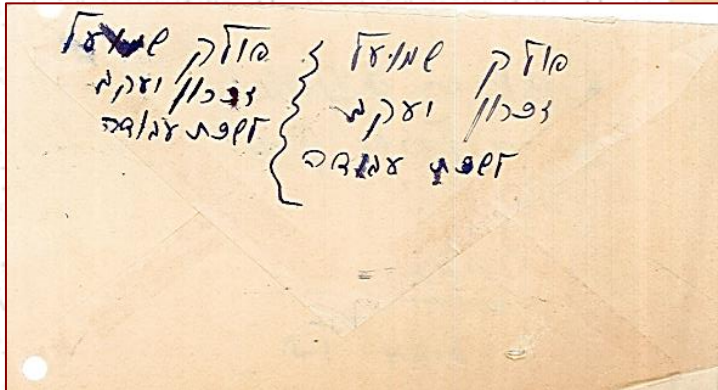 פולק שמועל
זכרון יעקב
לשכת עבודה
פולק שמועל
זכרון יעקב
לשכת עבודה